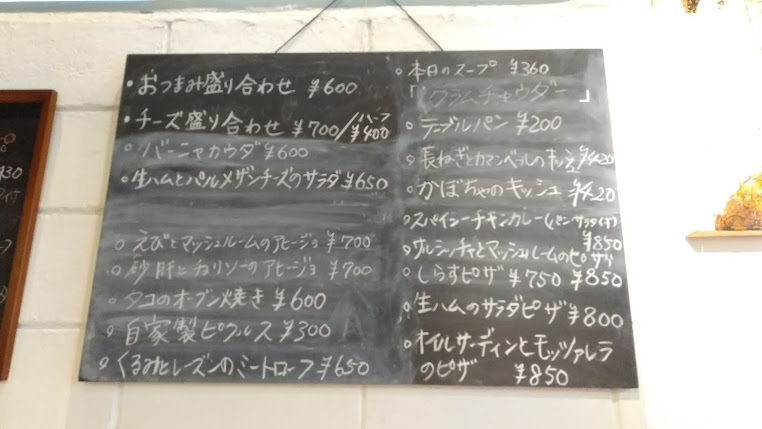 ・おつまみ盛り合わせ ¥600
・チーズ盛り合わせ ¥700/ハーフ¥400
・バーニャカウダ ¥600
・生ハムとパルメザンチーズのサラダ ¥650
○えびとマッシュルームのアヒージョ ¥700
○砂肝とチョリソーのアヒージョ ¥700
○タコのオーブン焼き ¥600
○自家製ピクルス ¥300
○くるみとレーズンのミートローフ ¥650
○本日のスープ ¥360
「クラムチャウダー」
○テーブルパン ¥200
○長ねぎとカマンベールのキッシュ ¥420
○かぼちゃのキッシュ ¥420
○スパイシーチキンカレー(パン サラダ付)
¥850
○サルシッチャとマッシュルームのピザ
¥850
○しらすピザ ¥750
○生ハムのサラダピザ ¥800
○オイルサーディンとモッツァレラ
のピザ ¥850